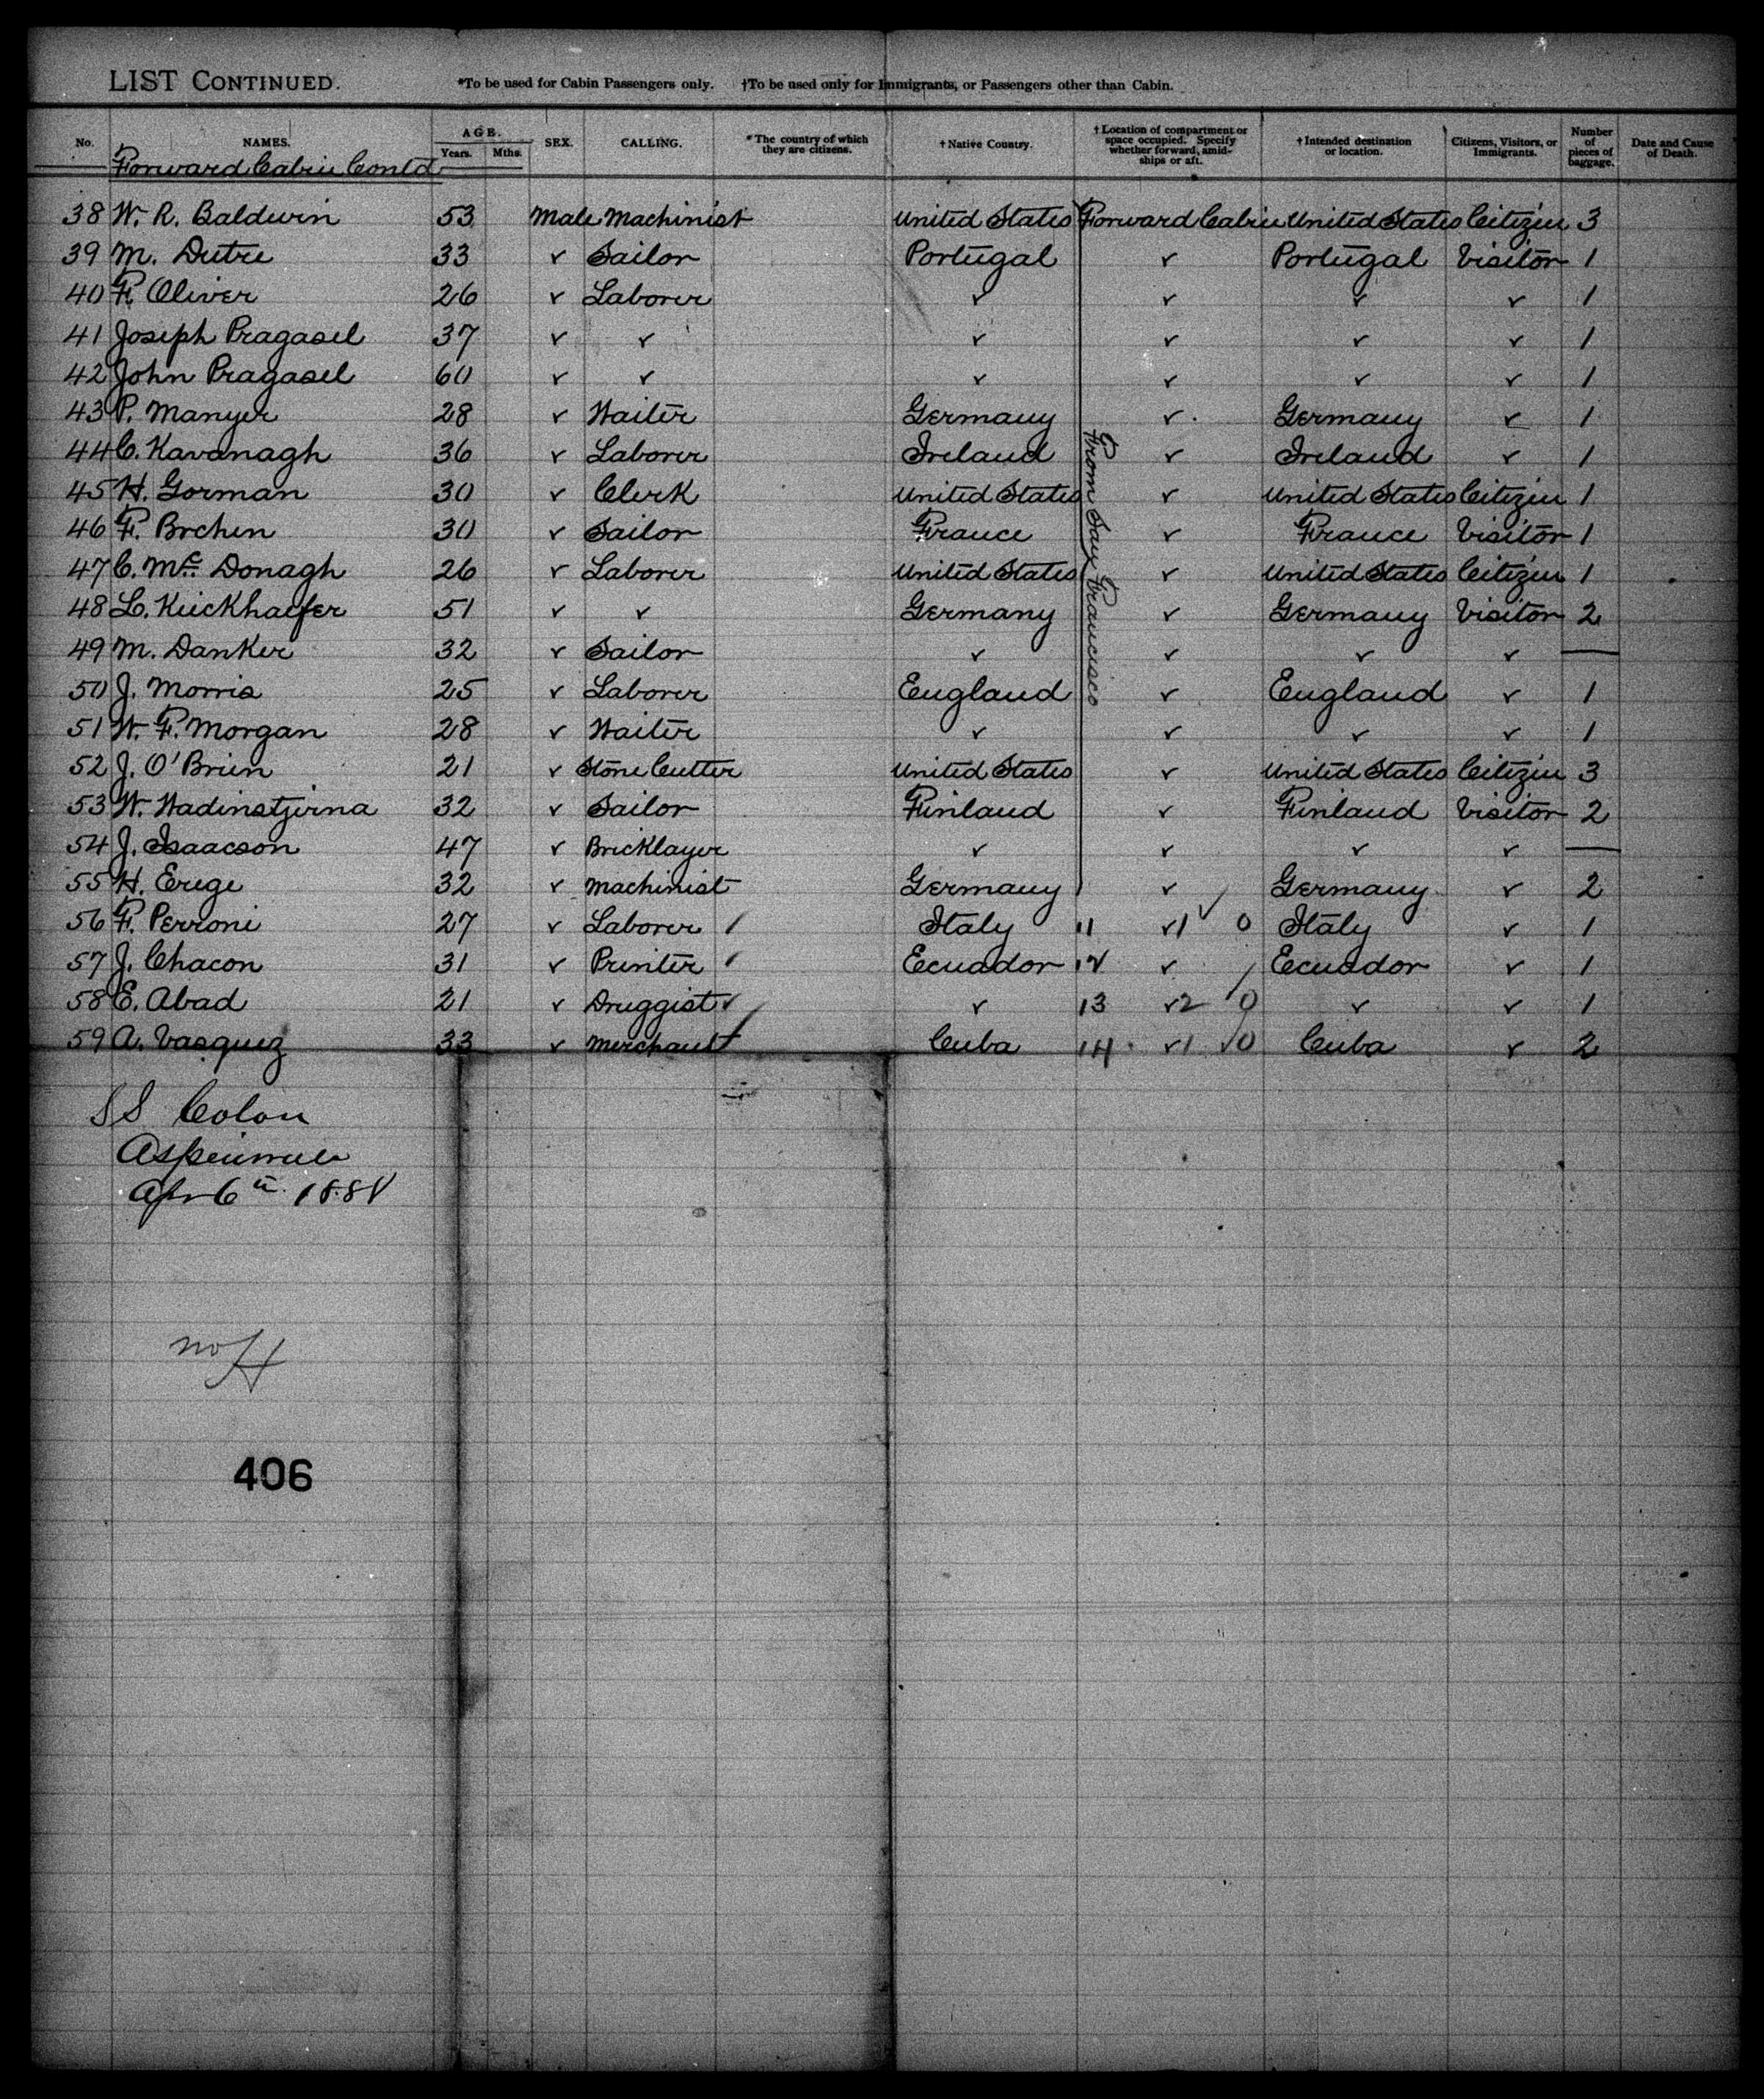 LIST CONTINUED. *To be used for Cabin Passengers only. †To be used only for Immigrants, or Passengers other than Cabin.
No. NAMES. AGE. Years. Mths. SEX. CALLING. *The country of which they are citizens. †Native Country. †Location of compartment or space occupied. Specify whether forward, amidships or aft. †Intended destination or location. Citizens, Visitors, or Immigrants. Number of pieces of baggage. Date and Cause of Death.
Forward Cabin Contd
38 W. R. Baldwin 53 Male Machinist United States Forward Cabin United States Citizen 3
39 M. Dutre 33 ✓ Sailor Portugal ✓ Portugal Visitor 1
40 F. Oliver 26 ✓ Laborer ✓ ✓ ✓ ✓ 1
41 Joseph Pragasel 37 ✓ ✓ ✓ ✓ ✓ ✓ 1
42 John Pragasel 60 ✓ ✓ ✓ ✓ ✓ ✓ 1
43 P. Manyer 28 ✓ Waiter Germany ✓ Germany ✓ 1
44 C. Kavanagh 36 ✓ Laborer Ireland ✓ Ireland ✓ 1
45 H. Gorman 30 ✓ Clerk United States ✓ United States Citizen 1
46 F. Brchen 30 ✓ Sailor France ✓ France Visitor 1
47 C. Mc Donagh 26 ✓ Laborer United States ✓ United States Citizen 1
48 L. Kuckhaefer 51 ✓ ✓ Germany ✓ Germany Visitor 2
49 M. Danker 32 ✓ Sailor ✓ ✓ ✓ ✓ —
50 J. Morris 25 ✓ Laborer England ✓ England ✓ 1
51 W. F. Morgan 28 ✓ Waiter ✓ ✓ ✓ ✓ 1
52 J. O'Brien 21 ✓ Stone Cutter United States ✓ United States Citizen 3
53 W. Wadinstjerna 32 ✓ Sailor Finland ✓ Finland Visitor 2
54 J. Isaacson 47 ✓ Bricklayer ✓ ✓ ✓ ✓ —
55 H. Erege 32 ✓ Machinist Germany ✓ Germany ✓ 2
From San Francisco
56 F. Perroni 27 ✓ Laborer Italy 11 ✓ 1 0 Italy ✓ 1
57 J. Chacon 31 ✓ Printer Ecuador 12 ✓ Ecuador ✓ 1
58 E. Abad 21 ✓ Druggist ✓ 13 ✓ 2 0 ✓ ✓ 1
59 A. Vasquez 33 ✓ Merchant Cuba 14 ✓ 1 0 Cuba ✓ 2
SS Colon
Aspinwall
Apr 6th
no H
406